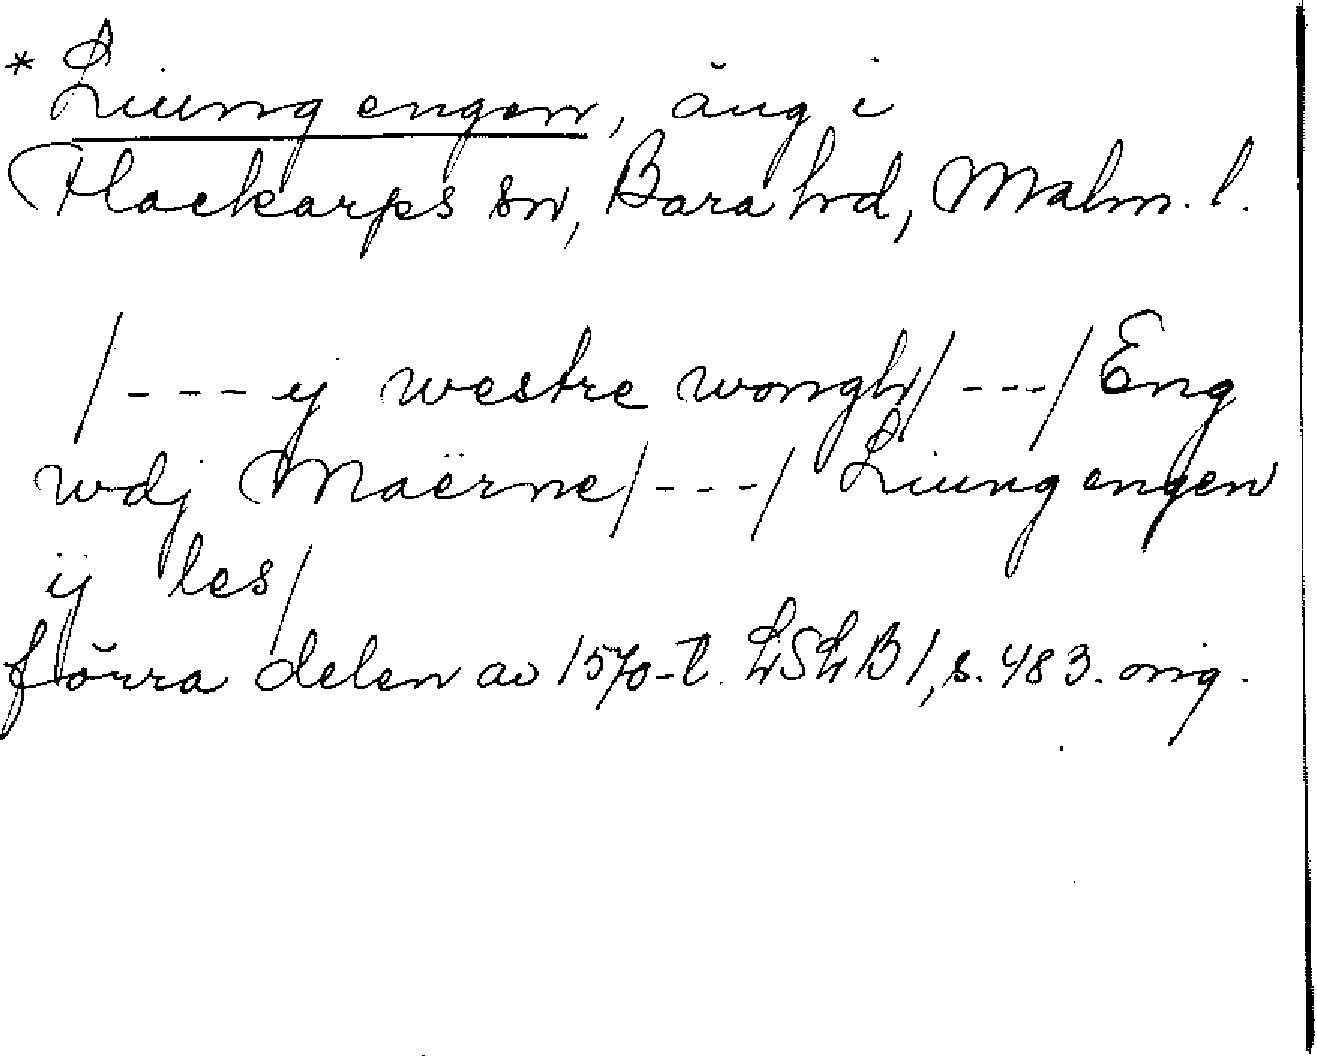 * Liung engen, äng i
Flackarps sn, Bara hd, Malm. l.
/---y westre wongh/---/Eng
wdj Maërne/---/ Liung engen
ÿ les/
förra delen av 1570-t. LSLB 1, s. 483. orig.